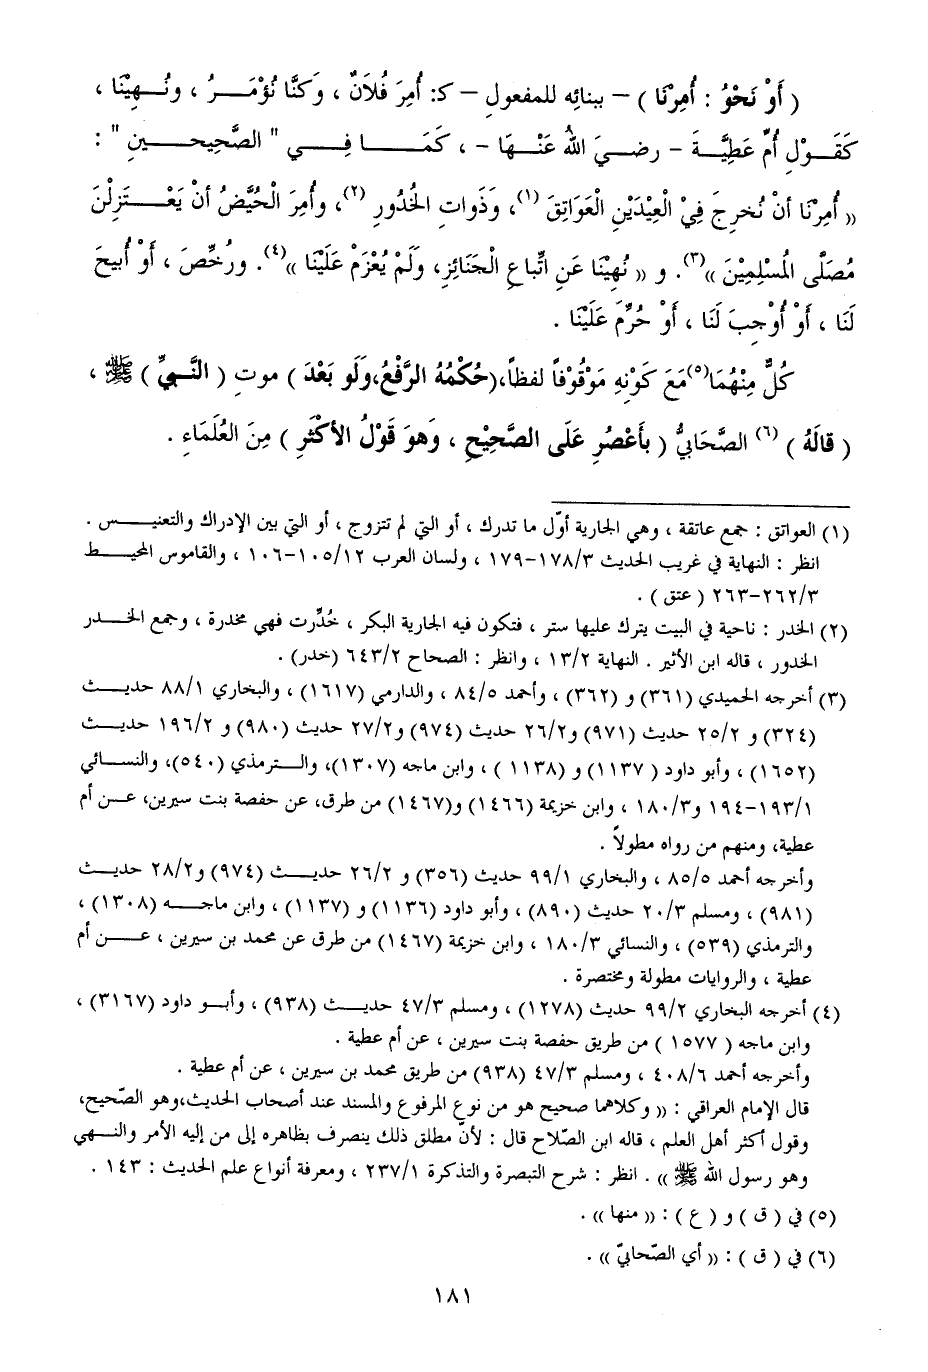 ( أَوْ نَحْوُ : أُمِرْنَا ) – ببنائِه للمفعولِ – كـ: أُمِرَ فُلَانٌ ، وَكنَّا نُؤْمَـــرُ ، ونُـــهِيْنَا ،
كَقَـوْلِ أُمِّ عَطِيَّـةَ – رضـيَ اللهُ عَنْـهَا – ، كَمَـــا فِـــي " الصَّحِيحـــينِ " :
(( أُمِرْنَا أنْ نُخرِجَ فِيْ الْعِيْدَيْنِ الْعَوَاتِقَ (١)، وَذَواتِ الخُدُورِ (٢)، وأُمِرَ الحُيَّضُ أنْ يَعْـــتَزِلْنَ
مُصَلَّى المُسْلِمِيْنَ ))(٣). و (( نُهِيْنَا عَنِ اتِّباعِ الجَنَائِزِ، وَلَمْ يُعْزَمْ عَلَيْنَا ))(٤). ورُخِّصَ ، أَوْ أُبيحَ
لَنَا ، أَوْ أُوْجِبَ لَنَا ، أَوْ حُرِّمَ عَلَيْنَا .
كُلٌّ مِنْهُمَا(٥)مَعَ كَوْنِهِ مَوْقُوْفاً لفظاً،(حُكْمُهُ الرَّفْعُ،وَلَو بَعْدَ ) موتِ ( النَّبيِّ ) ﷺ ،
( قالَهُ ) (٦) الصَّحَابيُّ ( بأَعْصُرٍ عَلَى الصَّحِيْحِ ، وَهوَ قَوْلُ الأكْثَرِ ) مِنَ العُلَمَاءِ .
(١) العواتق : جمع عاتقة ، وهي الجارية أوّل ما تدرك ، أو التي لم تتزوج ، أو التي بين الإدراك والتعنيـــس .
انظر : النهاية في غريب الحديث ١٧٨/٣-١٧٩ ، ولسان العرب ١٠٥/١٢-١٠٦ ، والقاموس المحيـــط
٢٦٢/٣-٢٦٣ ( عتق ) .
(٢) الخدر : ناحية في البيت يترك عليها ستر ، فتكون فيه الجارية البكر ، خُدِّرت فهي مخدرة ، وجمع الخـــدر
الخدور ، قاله ابن الأثير . النهاية ١٣/٢ ، وانظر : الصحاح ٦٤٣/٢ (خدر) .
(٣) أخرجه الحميدي (٣٦١) و (٣٦٢) ، وأحمد ٨٤/٥ ، والدارمي (١٦١٧) ، والبخاري ٨٨/١ حديـــث
(٣٢٤) و ٢٥/٢ حديث (٩٧١) و٢٦/٢ حديث (٩٧٤) و٢٧/٢ حديث (٩٨٠) و ١٩٦/٢ حديـــث
(١٦٥٢) ، وأبو داود ( ١١٣٧) و (١١٣٨ ) ، وابن ماجه (١٣٠٧)، والـــترمذي (٥٤٠)، والنســـائي
١٩٣/١-١٩٤ و١٨٠/٣ ، وابن خزيمة (١٤٦٦) و(١٤٦٧) من طرق، عن حفصة بنت سيرين، عـــن أم
عطية، ومنهم من رواه مطولاً .
وأخرجه أحمد ٨٥/٥ ، والبخاري ٩٩/١ حديث (٣٥٦) و ٢٦/٢ حديـــث (٩٧٤) و٢٨/٢ حديـــث
(٩٨١) ، ومسلم ٢٠/٣ حديث (٨٩٠) ، وأبو داود (١١٣٦) و (١١٣٧) ، وابن ماجـــه (١٣٠٨) ،
والترمذي (٥٣٩) ، والنسائي ١٨٠/٣ ، وابن خزيمة (١٤٦٧) من طرق عن محمد بن سيرين ، عـــن أم
عطية ، والروايات مطولة ومختصرة .
(٤) أخرجه البخاري ٩٩/٢ حديث (١٢٧٨) ، ومسلم ٤٧/٣ حديـــث (٩٣٨) ، وأبـــو داود (٣١٦٧) ،
وابن ماجه ( ١٥٧٧ ) من طريق حفصة بنت سيرين ، عن أم عطية .
وأخرجه أحمد ٤٠٨/٦ ، ومسلم ٤٧/٣ (٩٣٨) من طريق محمد بن سيرين ، عن أم عطية .
قال الإمام العراقي : (( وكلاهما صحيح هو من نوع المرفوع والمسند عند أصحاب الحديث،وهو الصّحيح،
وقول أكثر أهل العلم ، قاله ابن الصّلاح قال : لأنّ مطلق ذلك ينصرف بظاهره إلى من إليه الأمر والنـــهي
وهو رسول الله ﷺ )) . انظر : شرح التبصرة والتذكرة ٢٣٧/١ ، ومعرفة أنواع علم الحديث : ١٤٣ .
(٥) في ( ق ) و ( ع ) : (( منها )) .
(٦) في ( ق ) : (( أي الصّحابيّ )) .
١٨١